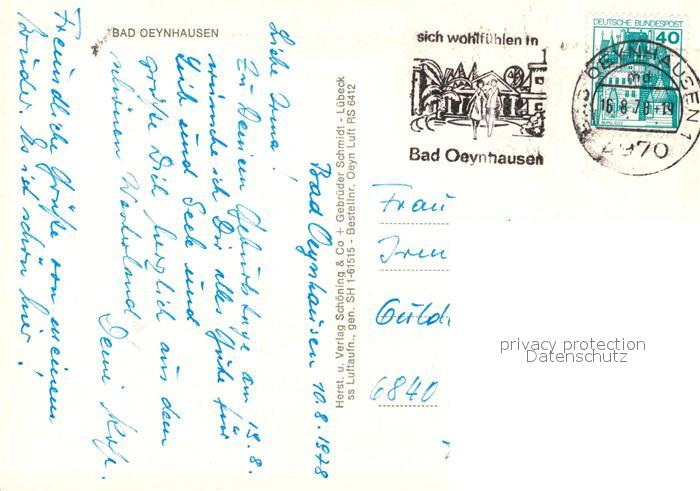 BAD OEYNHAUSEN
Bad Oeynhausen 10.8.1978
Liebe Irma!
Zu Deinem Geburtstage am 19.8.
wünsche ich Dir alles Gute für
Leib und Seele und
grüße Dich herzlich aus dem
schönen Weserland Deine
Freundliche Grüße von meinem
Bruder. Es ist schön hier!
Herst. u. Verlag Schöning & Co + Gebrüder Schmidt - Lübeck
ss Luftaufn., gen. SH 1-61515 - Bestellnr. Oeyn Luft RS 6412
sich wohlfühlen in
Bad Oeynhausen
DEUTSCHE BUNDESPOST
40
BAD OEYNHAUSEN 1
md
16.8.78-19
4970
Frau
Irm
Guld
6840
privacy protection
Datenschutz